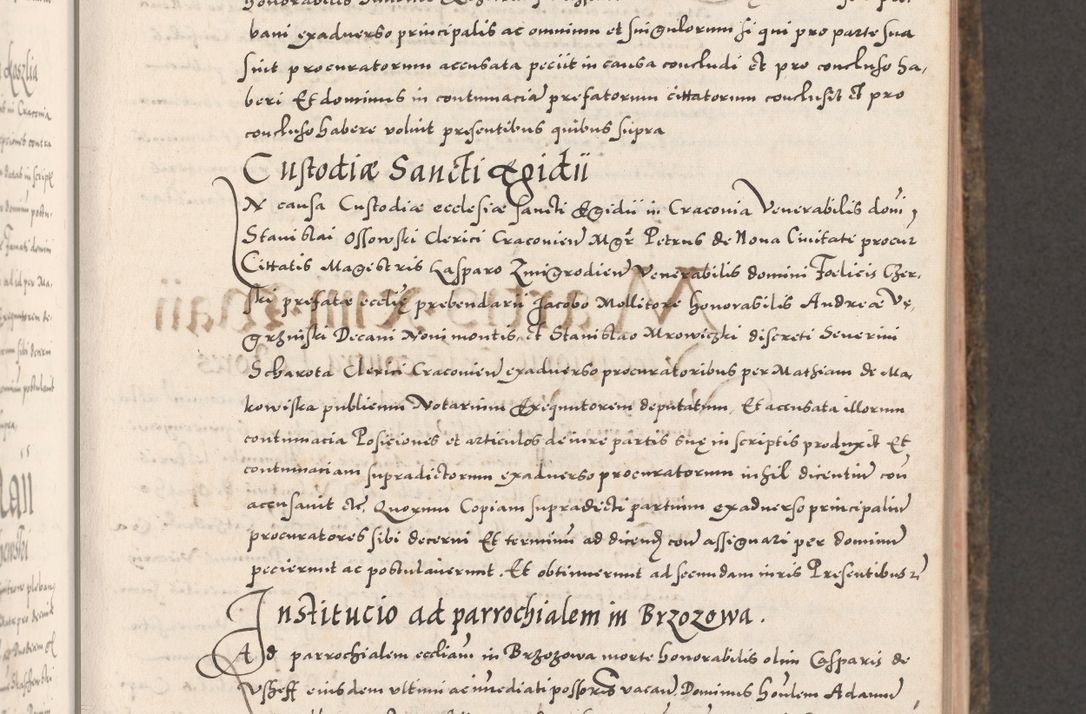 bani exadverso principalis ac omnium et singulorum si qui pro parte sua
sint procuratorum accusata peciit in causa concludi et pro concluso ha,
beri Et dominus in contumaciam prefatorum cittatorum conclusit et pro
concluso habere voluit presentibus quibus supra
Custodiæ Sancti Egidii
IN causa Custodiæ ecclesiæ sancti Egidii in Craconia Venerabilis domi,
Stanislai Ossowski Clerici Cracovien Mgr Petrus de Nova Civitate procur
Cittatis Magistris Casparo Zmigrodien Venerabilis domini Foelicis Czer,
ski prefatæ ecclię prebendarii Jacobo Mollitore honorabilis Andreæ Vę,
grzniski Decani Novi montis et Stanislao Mrowiczki discreti Severini
Scharota Clerici Cracovien exadverso procuratoribus per Mathiam de Ma,
kowiska publicum Notarium Exequutorem deputatum, Et accusata illorum
contumacia Posiciones et articulos de iure partis suę in scriptis produxit Et
contumaciam supradictorum exadverso procuratorum nihil dicentium con
accusavit etc, Quorum Copiam supradicti partium exadverso principalium
procuratores sibi decerni Et terminum ad dicend con assignari per dominum
pecierunt ac postulaverunt. Et obtinuerunt ad secundam iuris Presentibus
Institucio ad parrochialem in Brzozowa.
Ad parrochialem eccliam in Brzozowa morte honorabilis olim Casparis de
eiusdem ultimi ac immediati possoris vacan Dominus honlem Adamum